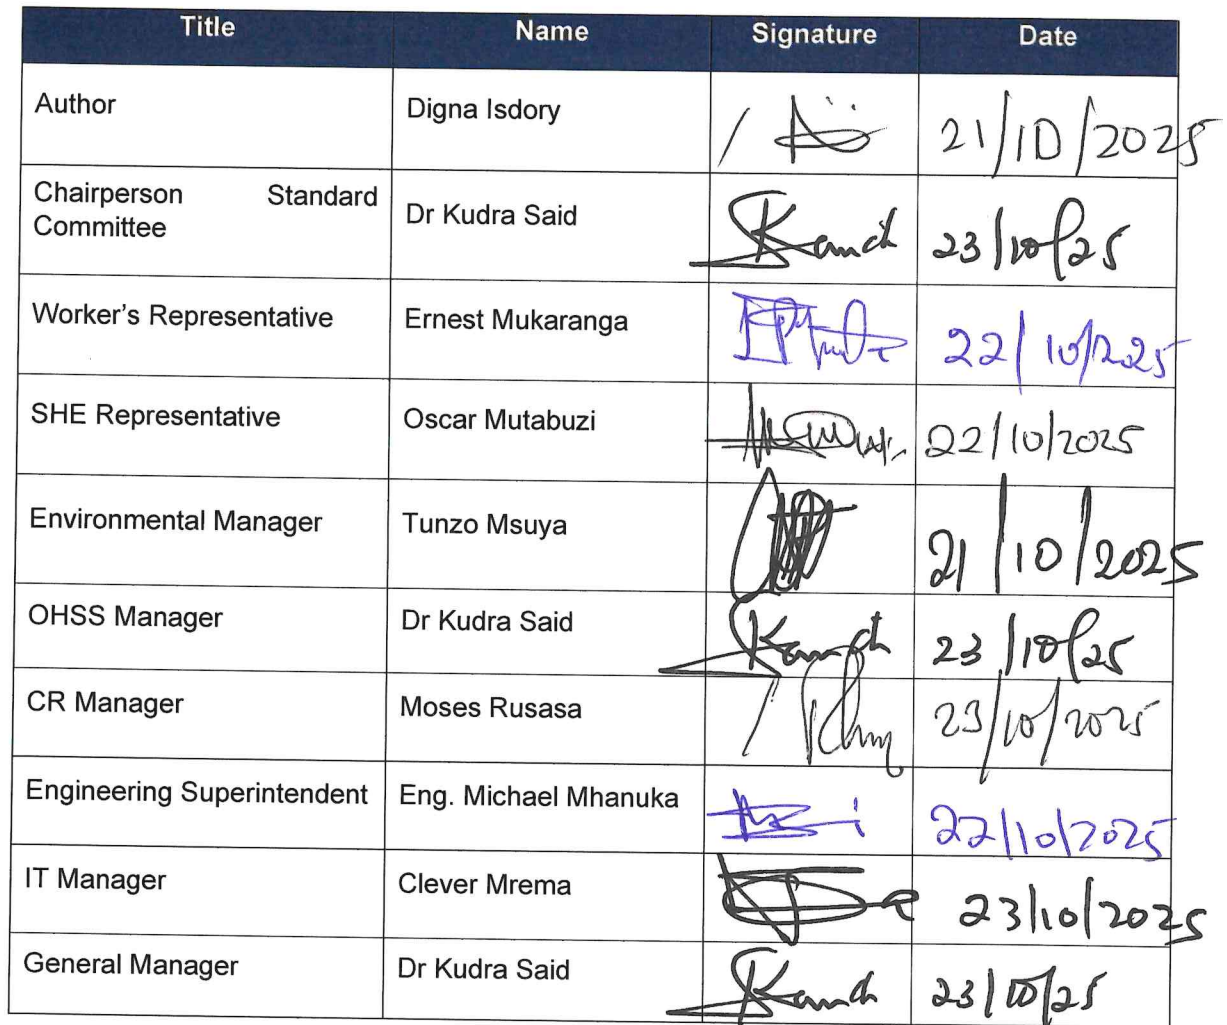 Title Name Signature Date
Author Digna Isdory 21/10/2025
Chairperson Standard
Committee Dr Kudra Said 23/10/25
Worker's Representative Ernest Mukaranga 22/10/2025
SHE Representative Oscar Mutabuzi 22/10/2025
Environmental Manager Tunzo Msuya 21/10/2025
OHSS Manager Dr Kudra Said 23/10/25
CR Manager Moses Rusasa 23/10/2025
Engineering Superintendent Eng. Michael Mhanuka 22/10/2025
IT Manager Clever Mrema 23/10/2025
General Manager Dr Kudra Said 23/10/25